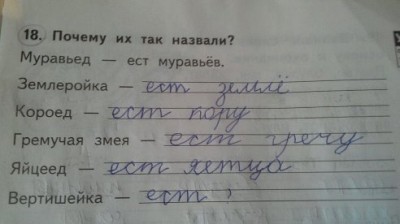 18. Почему их так назвали?
Муравьед — ест муравьёв.
Землеройка — ест землё
Короед — ест кору
Гремучая змея — ест гречу
Яйцеед — ест яетца
Вертишейка — ест